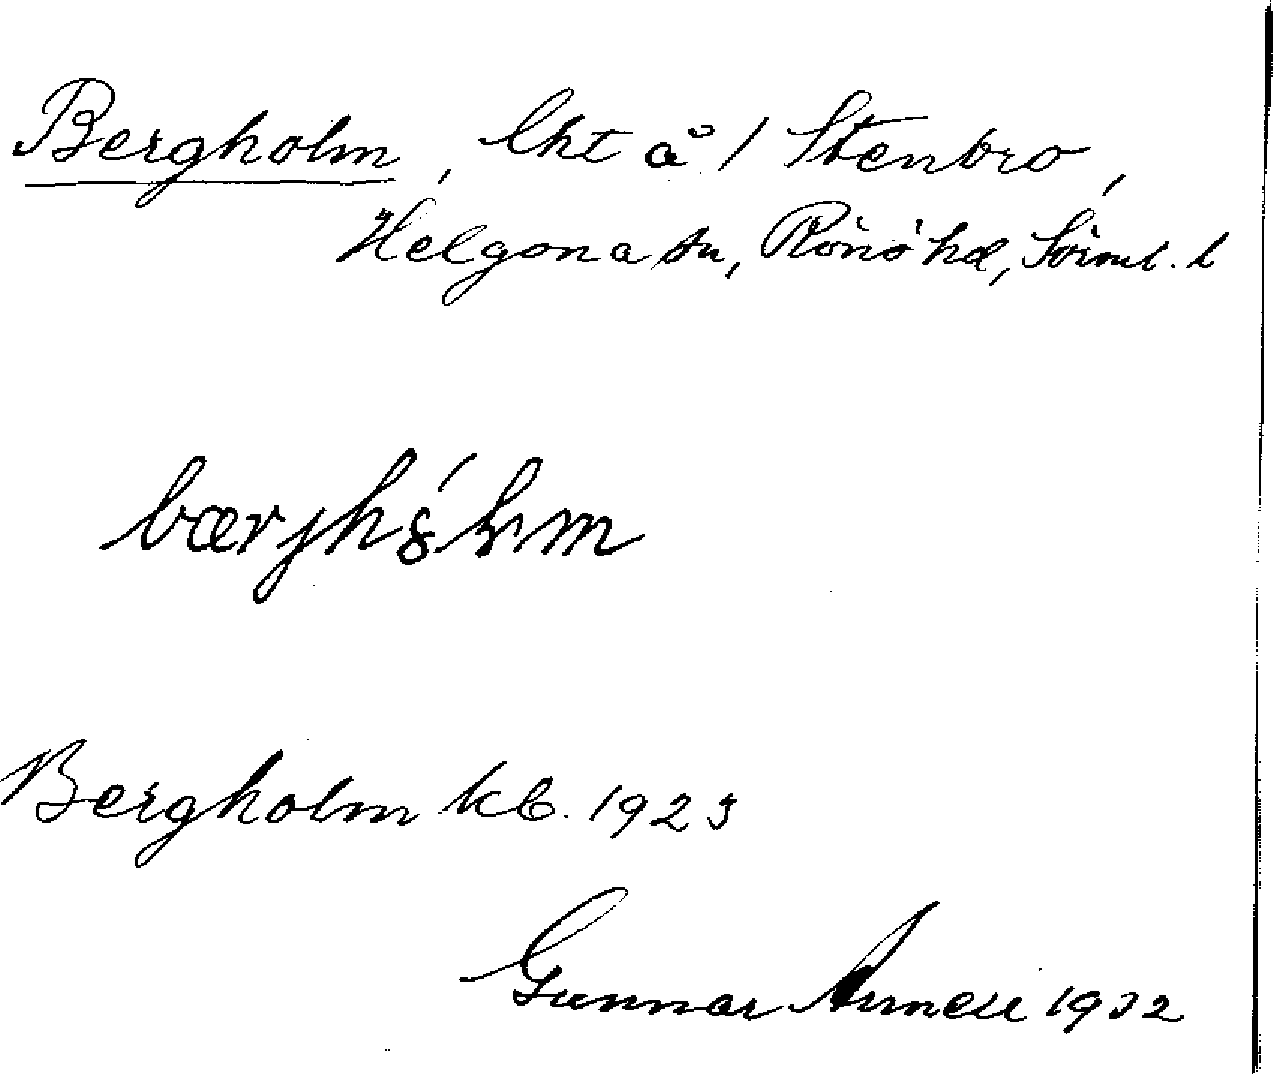 Bergholm, lht å 1 Stenbro,
Helgona sn, Rönö hd, Sörml. l
bærjhó̤lm
Bergholm kb. 1923
Gunnar Arnell 1932